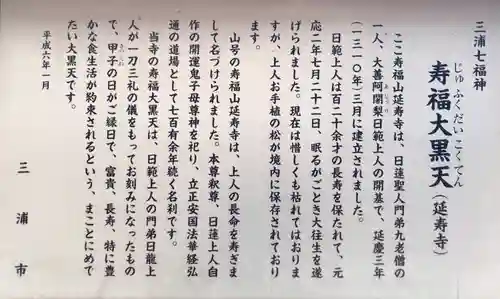 三浦七福神
じゅふくだいこくてん
寿福大黒天（延寿寺）
ここ寿福山延寿寺は、日蓮聖人門弟九老僧の
一人、大善阿闍梨日範上人の開基で、延慶三年
あじゃり
（一三一〇年）三月に建立されました。
日範上人は百二十余才の長寿を保たれて、元
応二年七月二十二日、眠るがごとき大往生を遂
げられました。現在は惜しくも枯れてはおりま
すが、上人お手植の松が境内に保存されており
ます。
山号の寿福山延寿寺は、上人の長命を寿ぎま
して名づけられました。本尊釈尊、日蓮上人自
作の開運鬼子母尊神を祀り、立正安国法華経弘
通の道場として七百有余年続く名刹です。
当寺の寿福大黒天は、日範上人の門弟日龍上
人が一刀三礼の儀をもってお刻みになったもの
で、甲子の日がご縁日で、富貴、長寿、特に豊
かな食生活が約束されるという、まことにめで
たい大黒天です。
平成六年一月
三浦市